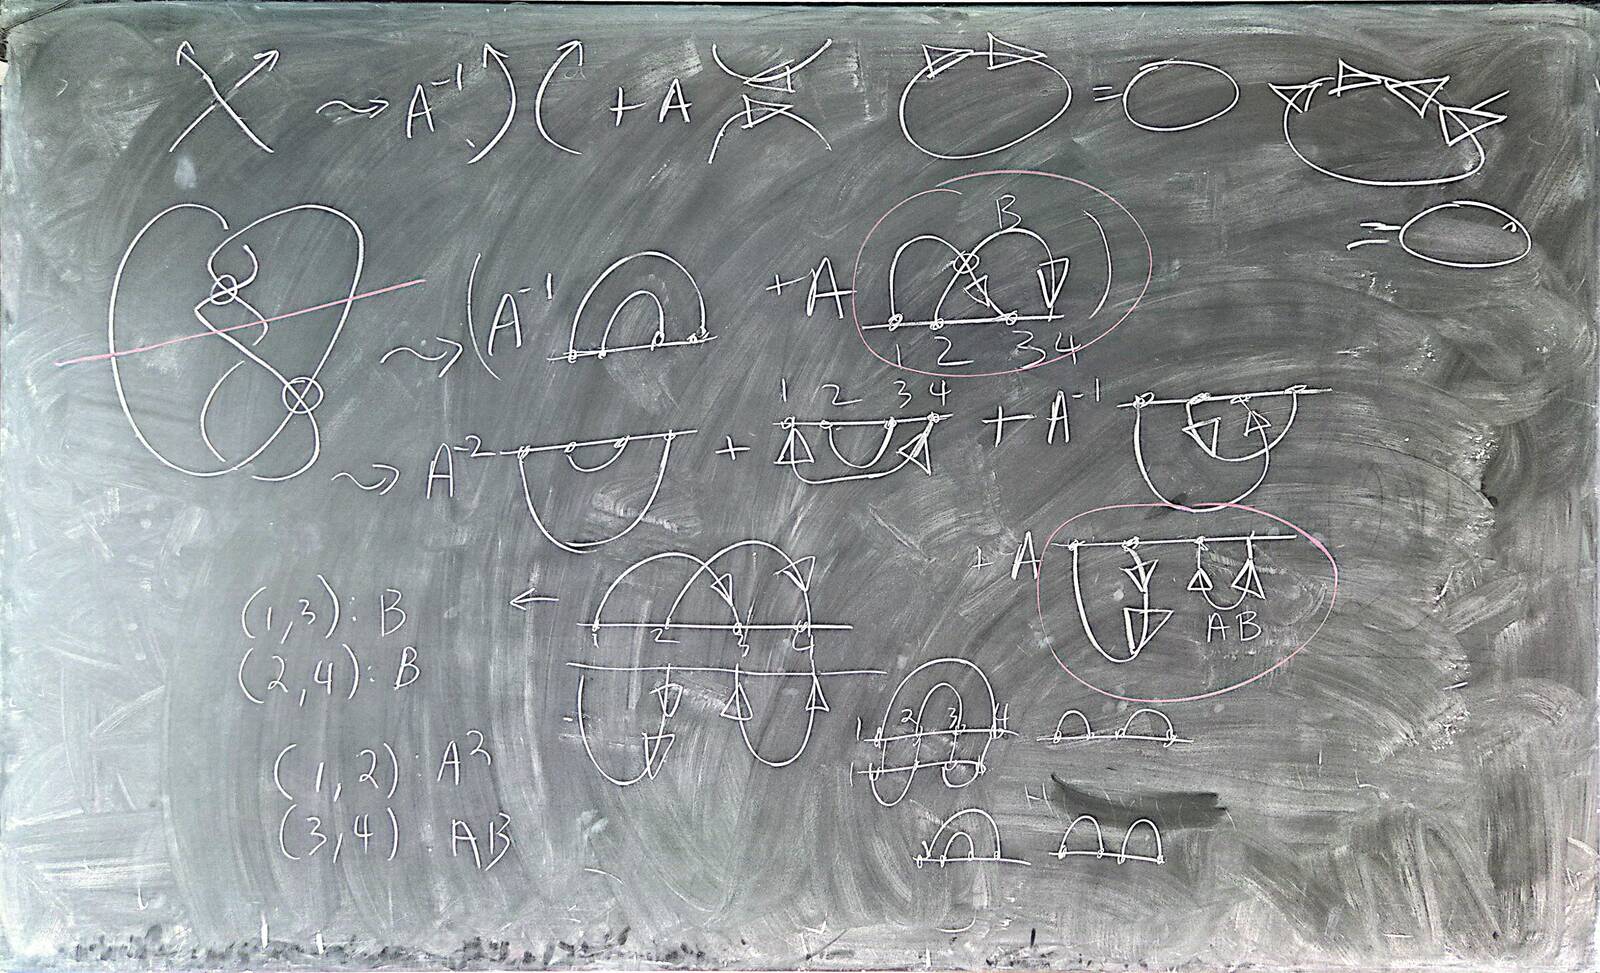 ⤳ A⁻¹ + A
=
=
B
⤳ ( A⁻¹ + A )
1 2 3 4
1 2 3 4
⤳ A⁻² + + A⁻¹
+ A
A B
(1,3): B ←
(2,4): B
1 2 3 4
1 2 3 4
1
(1,2): A²
(3,4): AB